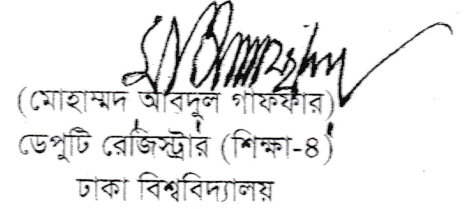 (মোহাম্মদ আবদুল গাফফার)
ডেপুটি রেজিস্ট্রার (শিক্ষা-৪)
ঢাকা বিশ্ববিদ্যালয়